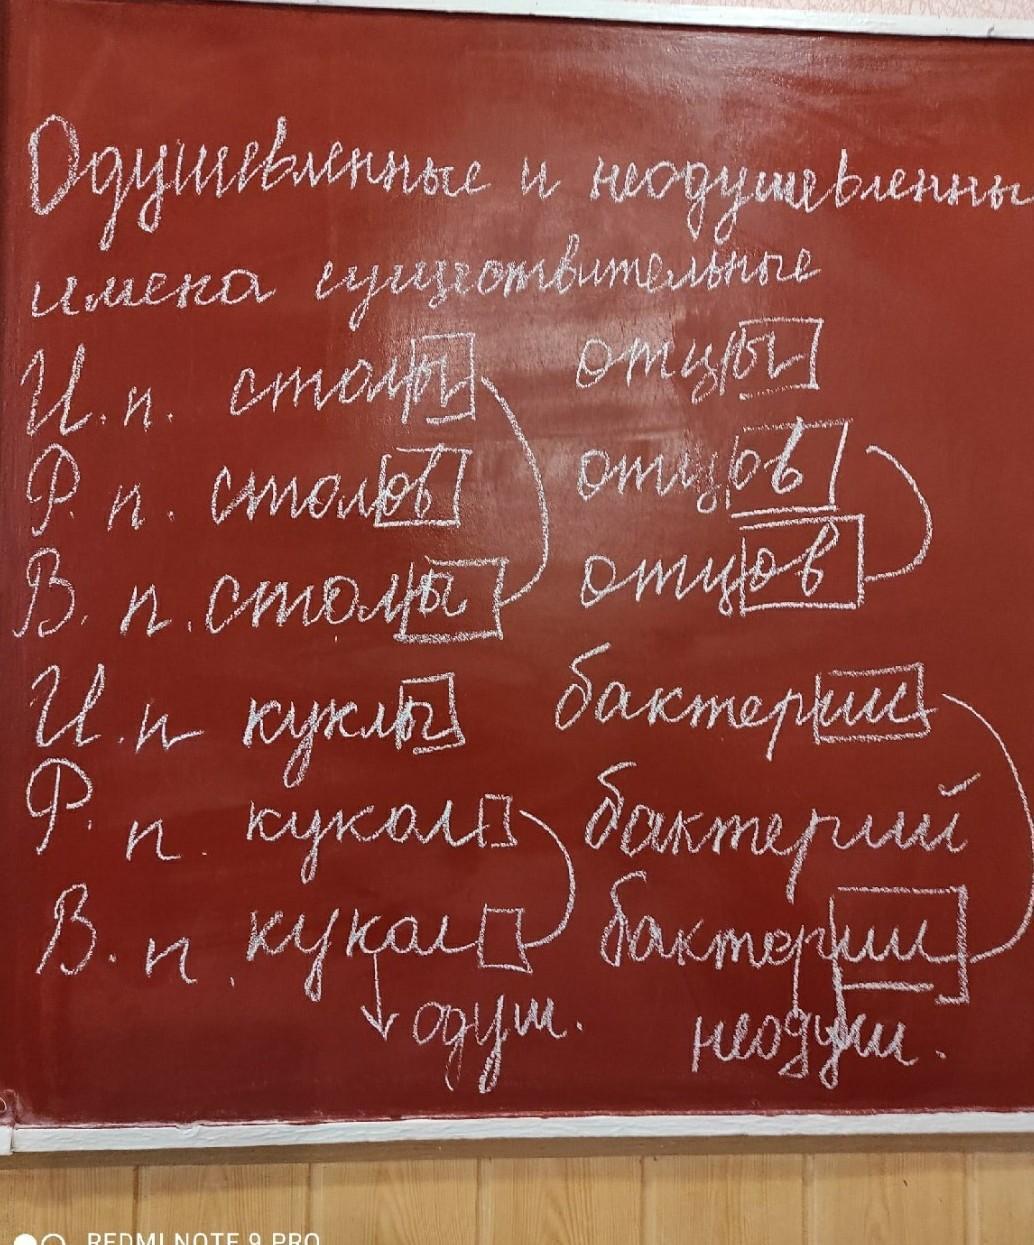 Одушевленные и неодушевленны
имена существительные
И. п. столы отцы
Р. п. столов отцов
В. п. столы отцов
И. п куклы бактерии
Р. п. кукол бактерий
В. п. кукол бактерии
одуш. неодуш.
REDMI NOTE 9 PRO